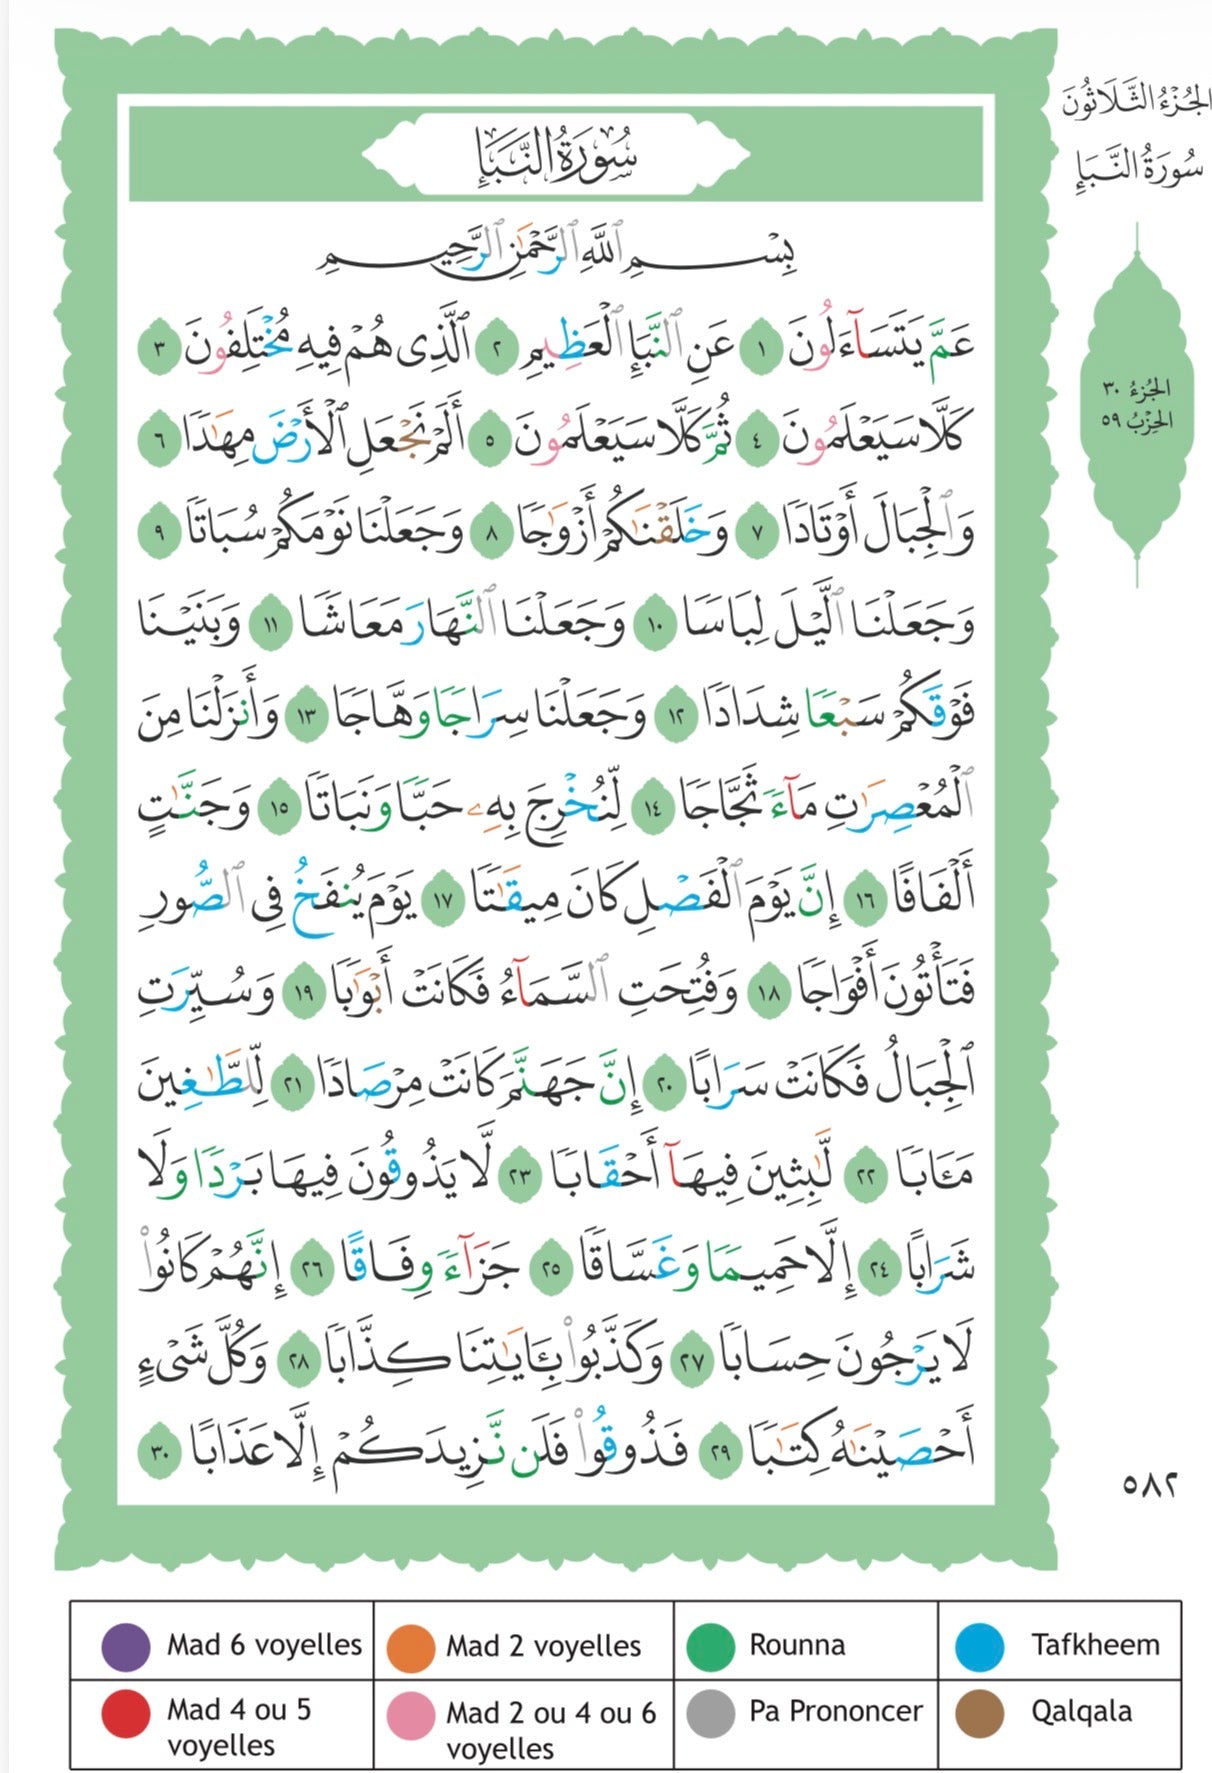 الجُزْءُ الثَّلَاثُونَ
سُورَةُ النَّبَإِ
سُورَةُ النَّبَإِ
بِسْمِ ٱللَّهِ ٱلرَّحْمَٰنِ ٱلرَّحِيمِ
عَمَّ يَتَسَآءَلُونَ ١ عَنِ ٱلنَّبَإِ ٱلْعَظِيمِ ٢ ٱلَّذِى هُمْ فِيهِ مُخْتَلِفُونَ ٣
كَلَّا سَيَعْلَمُونَ ٤ ثُمَّ كَلَّا سَيَعْلَمُونَ ٥ أَلَمْ نَجْعَلِ ٱلْأَرْضَ مِهَٰدًا ٦
وَٱلْجِبَالَ أَوْتَادًا ٧ وَخَلَقْنَٰكُمْ أَزْوَٰجًا ٨ وَجَعَلْنَا نَوْمَكُمْ سُبَاتًا ٩
وَجَعَلْنَا ٱلَّيْلَ لِبَاسًا ١٠ وَجَعَلْنَا ٱلنَّهَارَ مَعَاشًا ١١ وَبَنَيْنَا
فَوْقَكُمْ سَبْعًا شِدَادًا ١٢ وَجَعَلْنَا سِرَاجًا وَهَّاجًا ١٣ وَأَنزَلْنَا مِنَ
ٱلْمُعْصِرَٰتِ مَآءً ثَجَّاجًا ١٤ لِّنُخْرِجَ بِهِۦ حَبًّا وَنَبَاتًا ١٥ وَجَنَّٰتٍ
أَلْفَافًا ١٦ إِنَّ يَوْمَ ٱلْفَصْلِ كَانَ مِيقَٰتًا ١٧ يَوْمَ يُنفَخُ فِى ٱلصُّورِ
فَتَأْتُونَ أَفْوَاجًا ١٨ وَفُتِحَتِ ٱلسَّمَآءُ فَكَانَتْ أَبْوَٰبًا ١٩ وَسُيِّرَتِ
ٱلْجِبَالُ فَكَانَتْ سَرَابًا ٢٠ إِنَّ جَهَنَّمَ كَانَتْ مِرْصَادًا ٢١ لِّلطَّٰغِينَ
مَـَٔابًا ٢٢ لَّٰبِثِينَ فِيهَآ أَحْقَابًا ٢٣ لَّا يَذُوقُونَ فِيهَا بَرْدًا وَلَا
شَرَابًا ٢٤ إِلَّا حَمِيمًا وَغَسَّاقًا ٢٥ جَزَآءً وِفَاقًا ٢٦ إِنَّهُمْ كَانُوا۟
لَا يَرْجُونَ حِسَابًا ٢٧ وَكَذَّبُوا۟ بِـَٔايَٰتِنَا كِذَّابًا ٢٨ وَكُلَّ شَىْءٍ
أَحْصَيْنَٰهُ كِتَٰبًا ٢٩ فَذُوقُوا۟ فَلَن نَّزِيدَكُمْ إِلَّا عَذَابًا ٣٠
الجُزءُ ٣٠
الحِزْبُ ٥٩
٥٨٢
Mad 6 voyelles
Mad 2 voyelles
Rounna
Tafkheem
Mad 4 ou 5
voyelles
Mad 2 ou 4 ou 6
voyelles
Pa Prononcer
Qalqala